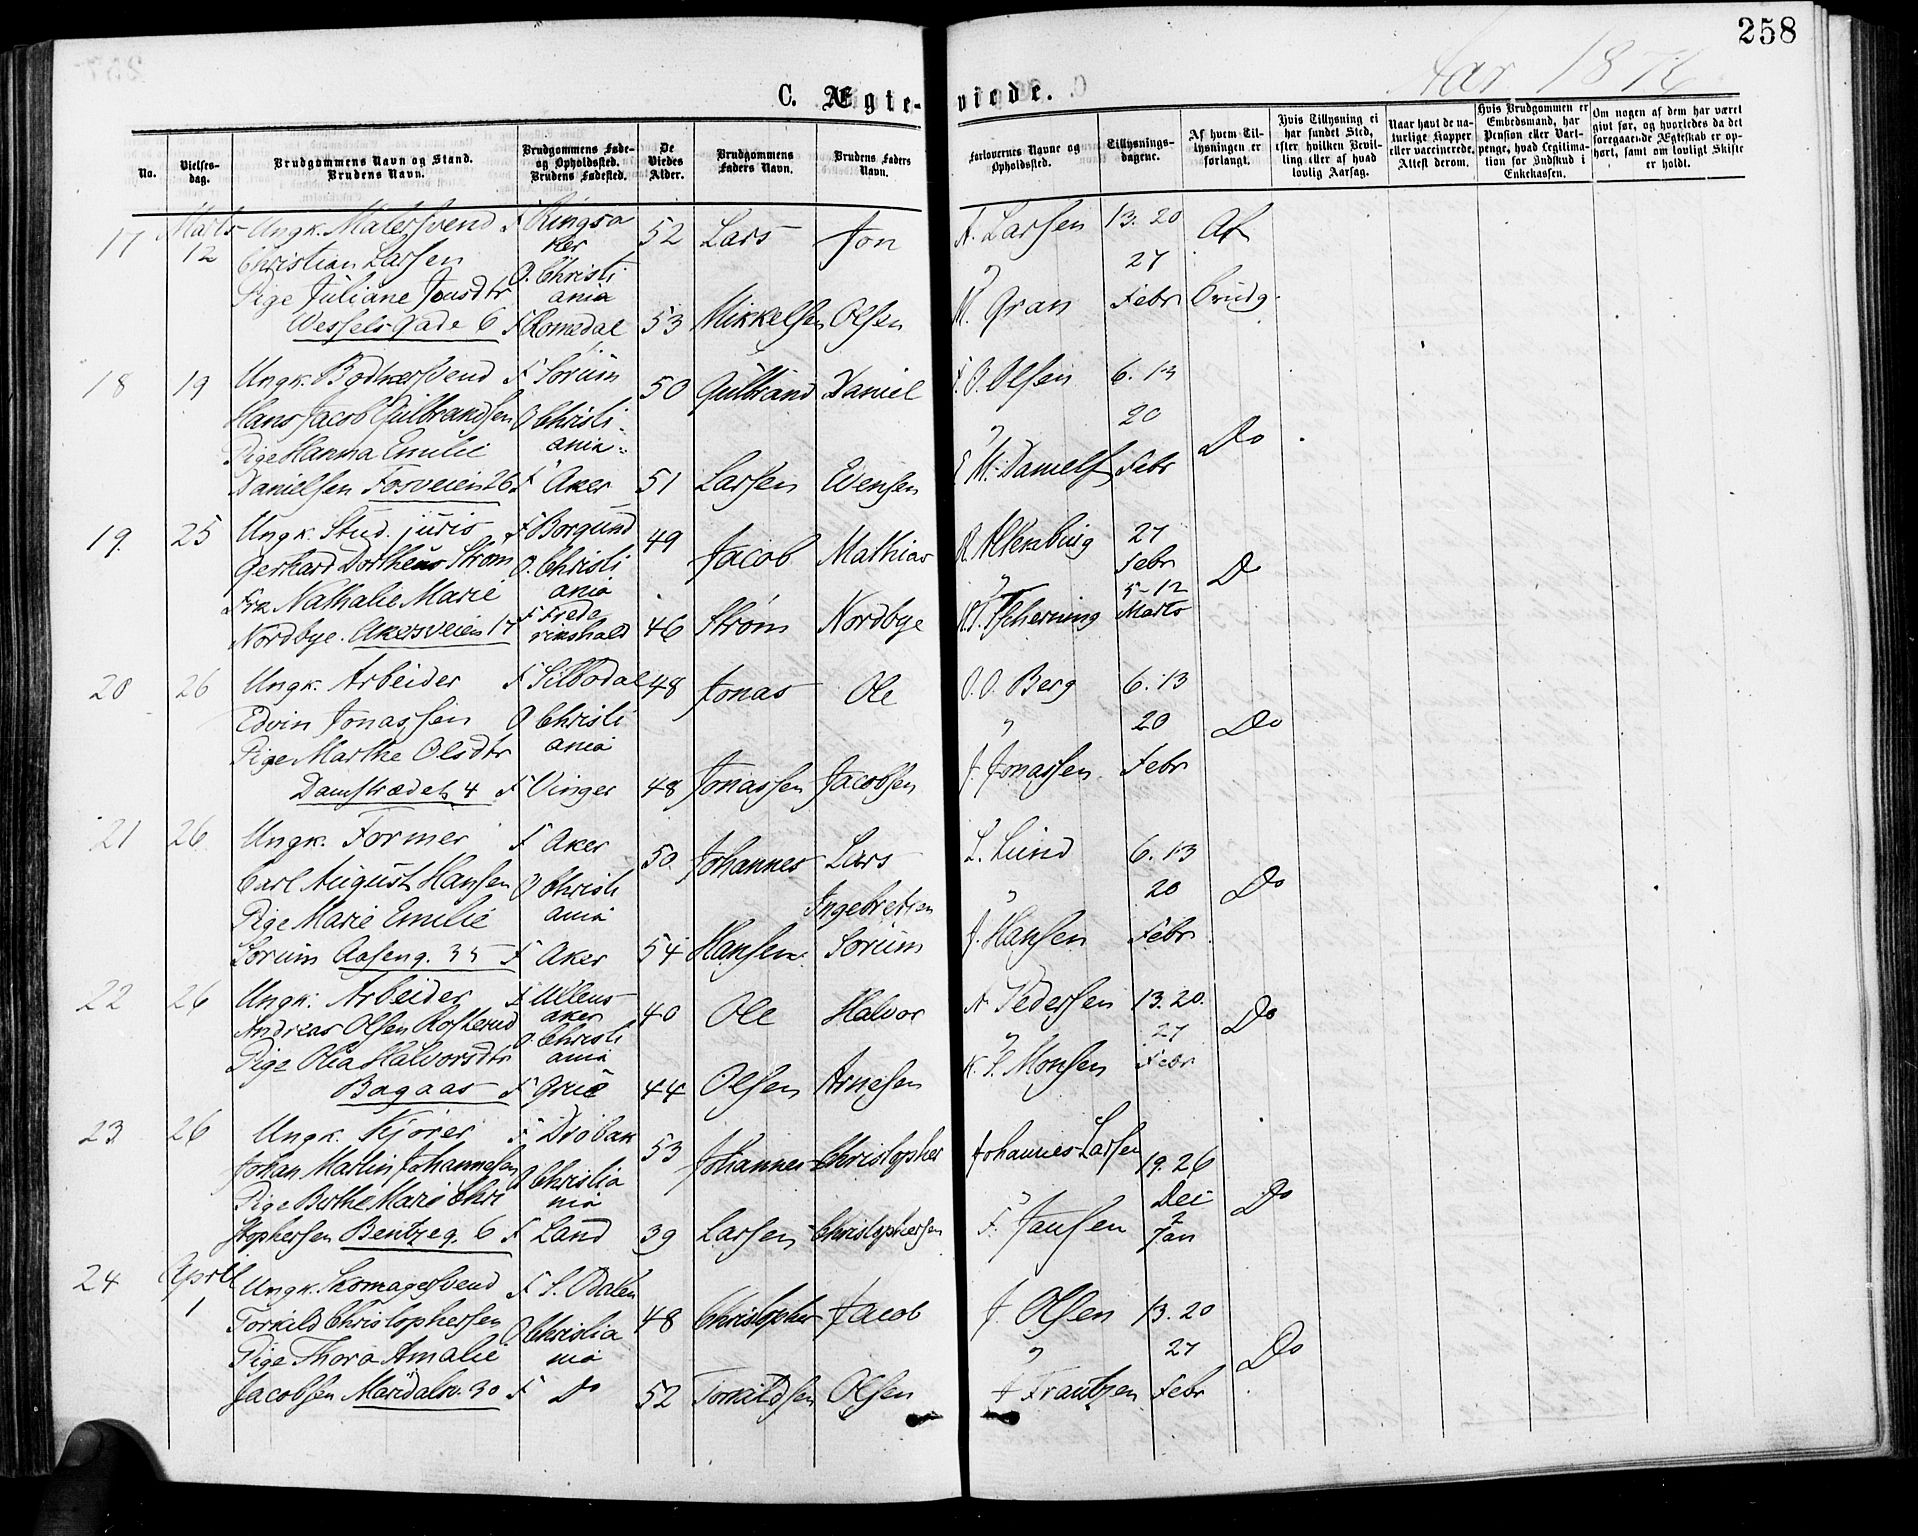 258
Aar 1876
C. Ægte- viede.
No.
Vielses-
dag.
Brudgommens Navn og Stand.
Brudens Navn.
Brudgommens Føde-
og Opholdssted.
Brudens Fødested.
De
Viedes
Alder.
Brudgommens
Faders Navn.
Brudens Faders
Navn.
Forlovernes Navne og
Opholdssted.
Tillysnings-
dagene.
Af hvem Til-
lysningen er
forlangt.
Hvis Tillysning ei
har fundet Sted,
efter hvilken Bevil-
ling eller af hvad
lovlig Aarsag.
Naar havt de na-
turlige Kopper
eller vaccinerede.
Attest derom.
Hvis Brudgommen er
Embedsmand, har
Pension eller Vart-
penge, hvad Legitima-
tion for Indskud i
Enkekassen.
Om nogen af dem har været
givt før, og hvorledes da det
foregaaende Ægteskab er op-
hørt, samt om lovligt Skifte
er holdt.
17 Marts 12 Ungk. Malersvend F Ringsa 52 Lars Jon A. Larsen 13. 20 Af
Christian Larsen ker
Pige Juliane Jonsdtr O. Christi ania " 27
Wesselsgade 6 F Romedal 53 Mikkelsen Olsen M. Gran Febr Brudg.
18 19 Ungk. Bødkersvend F Sørum 50 Gulbrand Daniel O. Olsen 6. 13
Hans Jacob Gulbrandsen O Christi- " 20
Pige Hanna Emilie ania Do
Danielsen Fosveien 26 F Aker 51 Larsen Evensen M. Daniels Febr
19. 25 Ungk. Stud. juris F Borgund 49 Jacob Mathias R. Altenburg 27
Gerhard Dortheus Strøm O. Christi Febr
Frk Nathalie Marie ania " 5-12 Do
Nordbye. Akersveien 17 F Frede rikshald 46 Strøm Nordbye Tscherning Marts
20 26 Ungk. Arbeider F Silbodal 48 Jonas Ole O. O. Berg 6. 13
Edvin Jonassen O Christi " 20 Do
Pige Marthe Olsdtr ania
Damstrædet 4 F Vinger 48 Jonassen Jacobsen J. Jonassen Febr
21 26 Ungk. Former F Aker 50. Johannes Lars L. Lund 6. 13
Carl August Hansen O Christi " 20 Do
Pige Marie Emilie ania Ingebretsen
Sørum Aaseng. 35 F Aker 54 Hansen Sørum J. Hansen Febr
22 26 Ungk. Arbeider F Ullens- 40 Ole Halvor A. Pedersen 13. 20. Do
Andreas Olsen Rosterud aker
Pige Olia Halvorsdtr O Christi ania " 27
Bagaas F Grue 44 Olsen Arnesen K. S. Monsen Febr
23 26 Ungk. Kjører F Drøbak 53 Johannes Christopher Johannes Larsen 19. 26
Johan Martin Johannesen O Christia Dec
Pige Berthe Marie Chri nia " 2 Do
stophersen Bentzeg. 6 F Land 39 Larsen Christophersen F. Jansen Jan
24 April 1 Ungk. Skomagersvend F S. Odalen 48 Christopher Jacob J. Olsen 13. 20
Torkild Christophersen O Christia
Pige Thora Amalie nia " 27 Do
Jacobsen Maridalsv. 30 F Do 52 Torkildsen Olsen Frantzen Febr